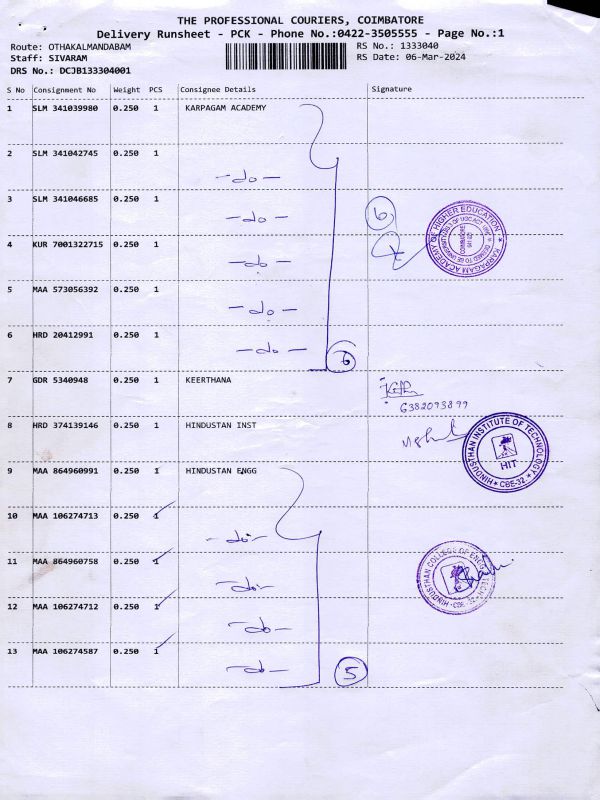 THE PROFESSIONAL COURIERS, COIMBATORE
Delivery Runsheet - PCK - Phone No.:0422-3505555 - Page No.:1
Route: OTHAKALMANDABAM
RS No.: 1333040
Staff: SIVARAM
RS Date: 06-Mar-2024
DRS No.: DCJB133304001
S No Consignment No Weight PCS Consignee Details Signature
1 SLM 341039980 0.250 1 KARPAGAM ACADEMY
2 SLM 341042745 0.250 1 -do-
3 SLM 341046685 0.250 1 -do-
4 KUR 7001322715 0.250 1 -do-
5 MAA 573056392 0.250 1 -do-
6 HRD 20412991 0.250 1 -do-
6
6
KARPAGAM ACADEMY OF HIGHER EDUCATION
7 GDR 5340948 0.250 1 KEERTHANA
6382093899
8 HRD 374139146 0.250 1 HINDUSTAN INST
HINDUSTHAN INSTITUTE OF TECHNOLOGY
HIT
CBE-32
9 MAA 864960991 0.250 1 HINDUSTAN ENGG
10 MAA 106274713 0.250 1 -do-
11 MAA 864960758 0.250 1 -do-
12 MAA 106274712 0.250 1 -do-
13 MAA 106274587 0.250 1 -do-
5
HINDUSTHAN COLLEGE OF ENGG
CBE-32